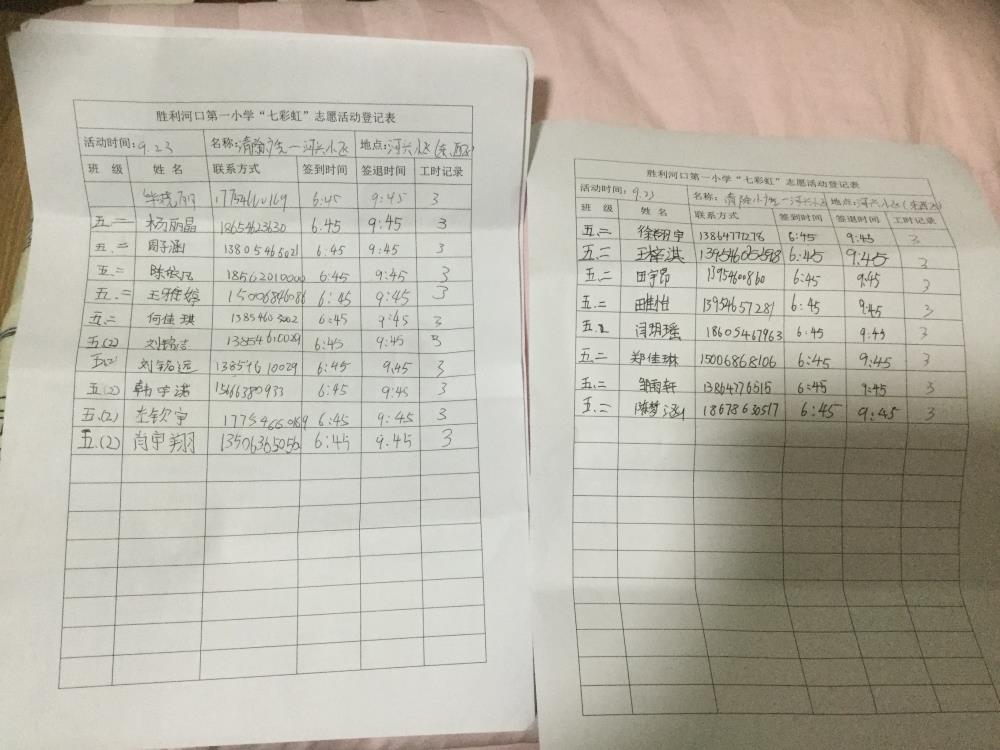 胜利河口第一小学“七彩虹”志愿活动登记表
活动时间:9.23 名称:清除小广告—河兴小区 地点:河兴小区(东、西区)
班 级 姓 名 联系方式 签到时间 签退时间 工时记录
6:45 9:45 3
五.二 杨丽晶 18654623630 6:45 9:45 3
五.二 周子涵 13805465021 6:45 9:45 3
五.二 6:45 9:45 3
五.二 王雅婷 15006846086 6:45 9:45 3
五.二 何佳琪 13854603002 6:45 9:45 3
五(2) 13854610029 6:45 9:45 3
五(2) 刘铭远 13854610029 6:45 9.45 3
五(2) 韩宇诺 15663880933 6:45 9:45 3
五.(2) 6:45 9:45 3
五.(2) 肖宇翔 13506365050 6:45 9.45 3
胜利河口第一小学“七彩虹”志愿活动登记表
活动时间:9.23 名称:清除小广告—河兴小区 地点:河兴小区(东西区)
班 级 姓 名 联系方式 签到时间 签退时间 工时记录
五.二 徐翔宇 13864771278 6:45 9:45 3
五.二 王梓淇 6:45 9:45 3
五.二 田宇昂 13954600860 6:45 9:45 3
五.二 田雅怡 13954657281 6:45 9:45 3
五.2 闫玥瑶 18605467963 6:45 9:45 3
五.二 郑佳琳 15006868106 6:45 9:45 3
五.二 邹雨轩 13864776515 6:45 9:45 3
五.二 陈梦涵 18678630517 6:45 9:45 3